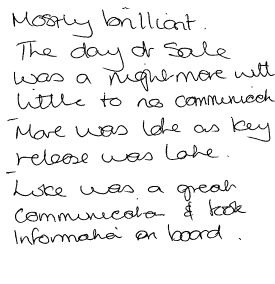 Mostly brilliant.
The day of Sale
was a nightmare with
little to no communicati
Mare was late as key
release was late.
Luke was a great
communicator & took
Information on board.